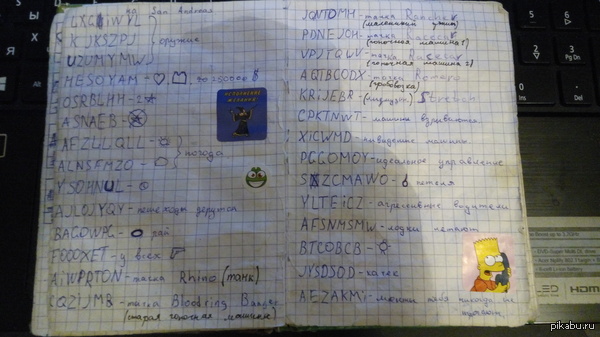 на San Andreas
LXGIWYL
KJKSZPJ } оружие
UZUMYMW
HESOYAM - , до 250000 $
OSRBLHH - 2
ASNAEB -
AFZLLQLL -
ALNSFMZO - } погода
YSOHNUL -
AJLOJYQY - пешеходы дерутся
BAGOWPG - рай
FOOOXET - у всех
AIWPRTON - тачка Rhino (танк)
CQZIJMB - тачка Bloodring Banger
(старая гоночная машина)
ИСПОЛНЕНИЕ
ЖЕЛАНИЙ
JQNTDMH - тачка Rancher
(маленький)
PDNEJCH - тачка Racecar
(гоночная машина 1)
VPJTQWV - тачка Racecar
(гоночная машина 2)
AQTBCODX - тачка Romero
(гробовозка)
KRIJEBR - Stretch
CPKTNWT - машины взрываются
XICWMD - невидение машин
PGGOMOY - идеальное управление
SZCMAWO -
YLTEICZ - агрессивные водители
AFSNMSMW - лодки летают
BTCDBCB -
JYSDSOD - качек
AEZAKMI - менты тебя никогда не
HDMI
pikabu.ru